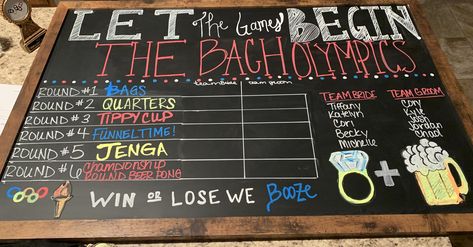 LET The Games BEGIN
THE BACHOLYMPICS
team bride team groom
ROUND #1 BAGS
ROUND #2 QUARTERS
ROUND #3 TIPPY CUP
ROUND #4 FUNNELTIME!
ROUND #5 JENGA
ROUND #6 CHAMPIONSHIP
ROUND BEER PONG
TEAM BRIDE
Tiffany
Katelyn
Cori
Becky
Michelle
TEAM GROOM
Cory
Kyle
Josh
Jordan
Chad
+
WIN OR LOSE WE Booze